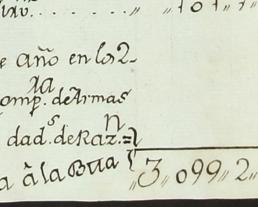 año en los 2
ra
Comp. de Armas
s n
dad. de Raz.
a â la Bua 3,, 099,, 2,,